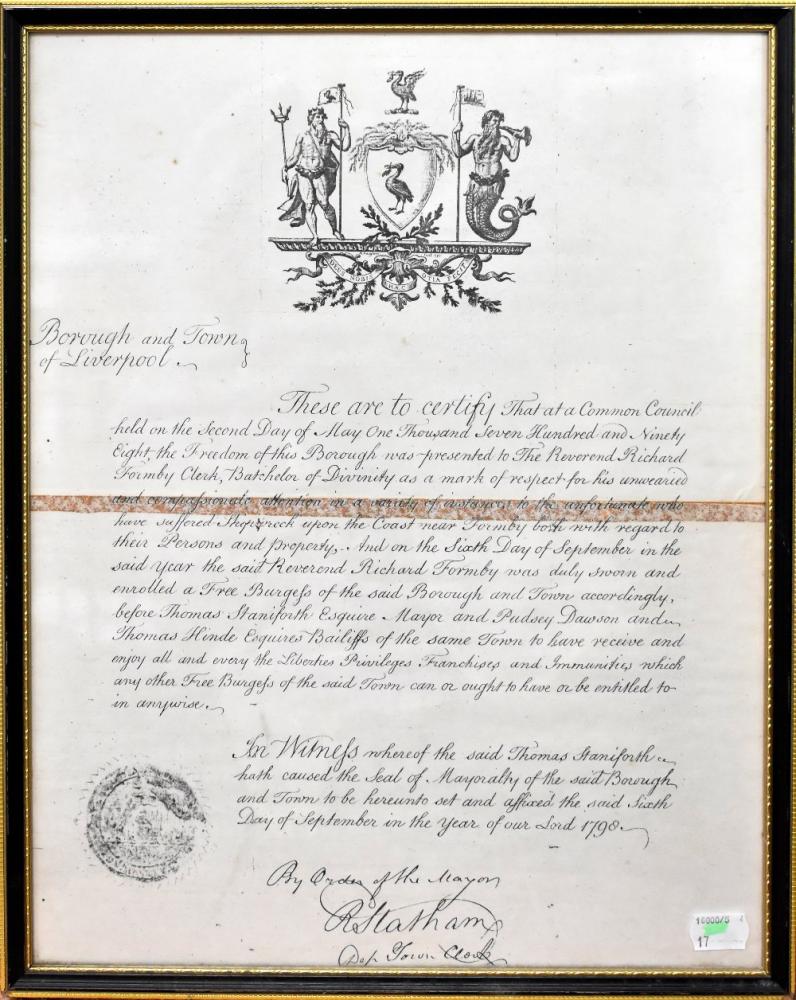 DEUS NOBIS HÆC OTIA FECIT
Borough and Town
of Liverpool
These are to certify That at a Common Council
held on the Second Day of May One Thousand Seven Hundred and Ninety
Eight, the Freedom of this Borough was presented to The Reverend Richard
Formby Clerk, Batchelor of Divinity as a mark of respect for his unwearied
and compassionate attention in a variety of instances to the unfortunate who
have suffered Shipwreck upon the Coast near Formby both with regard to
their Persons and property, And on the Sixth Day of September in the
said Year the said Reverend Richard Formby was duly sworn and
enrolled a Free Burgeſs of the said Borough and Town accordingly,
before Thomas Staniforth Esquire Mayor and Pudsey Dawson and
Thomas Hinde Esquires Bailiffs of the same Town to have receive and
enjoy all and every the Liberties Privileges Franchises and Immunities which
any other Free Burgeſs of the said Town can or ought to have or be entitled to
in anywise.
In Witneſs whereof the said Thomas Staniforth
hath caused the Seal of Mayoralty of the said Borough
and Town to be hereunto set and affixed the said Sixth
Day of September in the Year of our Lord 1798
By Order of the Mayor
R Statham
Dep Town Clerk
16000/5 4
17